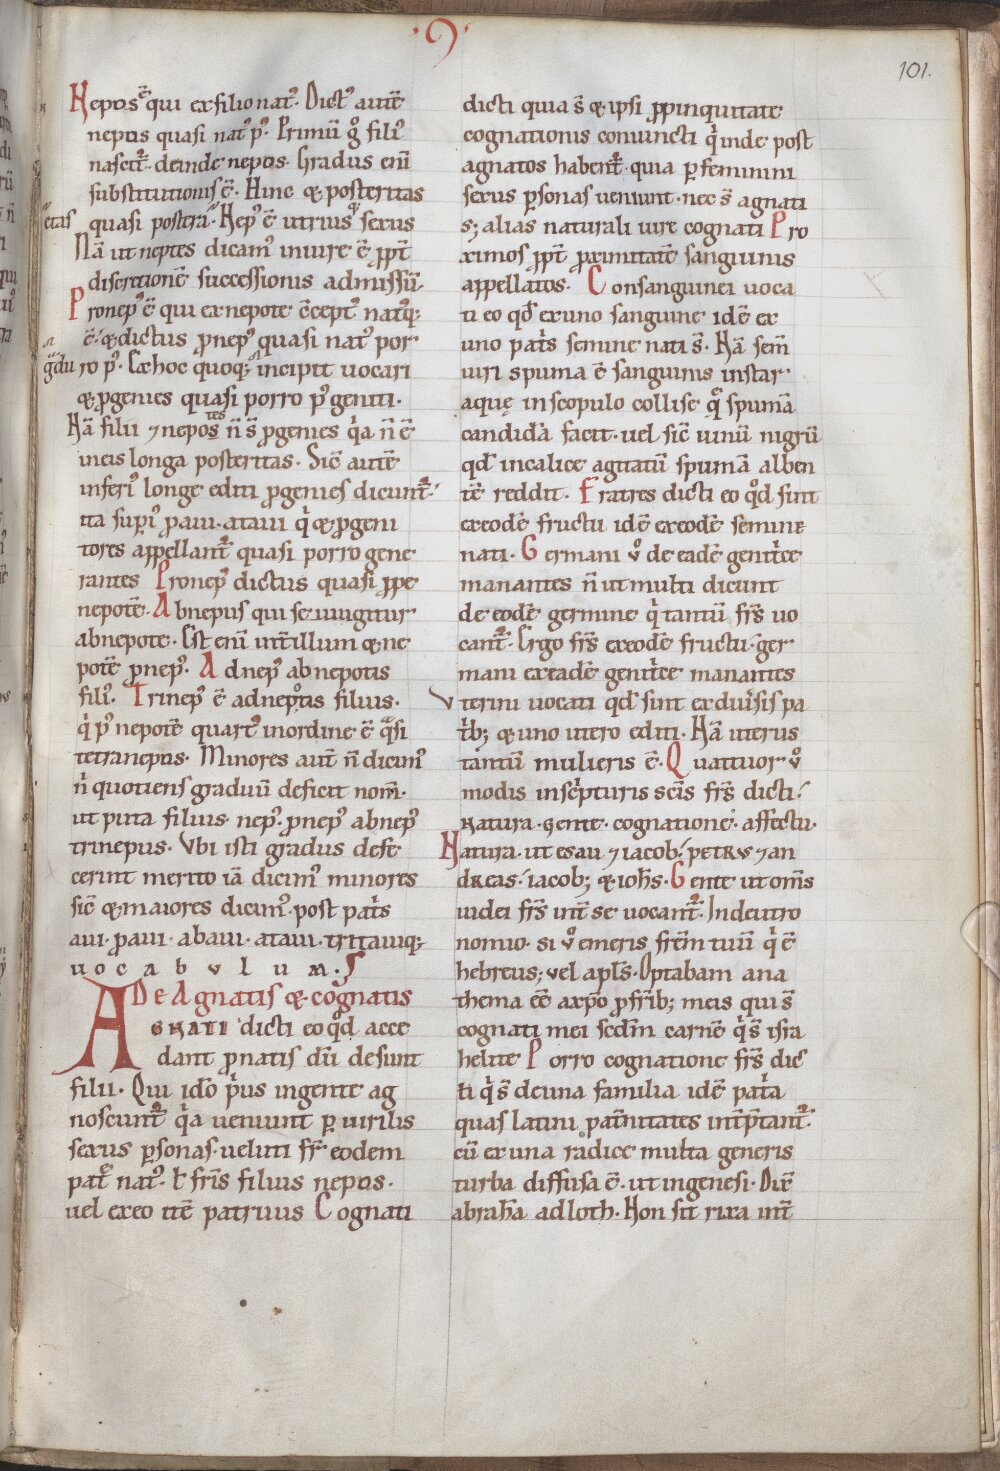 ·9·
101.
Nepos ē qui ex filio nat᷒. Dict᷒ autē
nepos quasi nat᷒ p᷒. Primū g̊ fili᷒
nascit᷑. deinde nepos. Gradus enī
substitutionis ē. Hinc & posteritas
etas quasi postera. Nep᷒ ē utriusq; sexus
Nā ut neptes dicam᷒ in iure ē ꝓpt̄
discretionē successionis admissū.
Pronep᷒ ē qui ex nepote c̄cept᷒ natq;
ē. & dictus ꝓnep᷒ quasi nat᷒ por
ro p᷒. Ex hoc quoq; incipit uocari
& ꝓgenies quasi porro p᷒ geniti.
Nā filii ⁊ nepotes n̄ s̄ ꝓgenies qͥa n̄ ē
in eis longa posteritas. Sic̄ autē
inferi᷒ longe editi ꝓgenies dicunt᷑.
ita supi᷒ ꝓaui. ataui qͥ & ꝓgeni
tores appellant᷑ quasi porro gene
rantes Pronep᷒ dictus quasi ꝓpe
nepotē. Abnepus qui seiungitur
abnepote. Est enī int̄ illum & ne
potē ꝓnep᷒. Adnep᷒ abnepotis
fili᷒. Trinep᷒ ē adnepotis filius.
qͥ p᷒ nepotē quart᷒ in ordine ē qͣsi
tetranepus. Minores aut̄ n̄ dicim᷒
nͥ quotiens graduū deficit nom̄.
ut puta filius. nep᷒. ꝓnep᷒ abnep᷒
trinepus. Ubi isti gradus defe
cerint merito iā dicim᷒ minores
sic̄ & maiores dicim᷒. post pat͛s
aui. ꝓaui. abaui. ataui. tritauiq;
uocabulum.
DE Agnatis & cognatis
AGNATI dicti eo qd̊ acce
dant ꝓ natis dū desunt
filii. Qui ido̅ pͥus in gente ag
noscunt᷑ qͥa ueniunt ꝑ uirilis
sexus ꝑsonas. ueluti fr̄ eodem
pat͛ nat᷒. ł fr̄is filius nepos.
uel ex eo itē patruus Cognati
dicti quia s̄ & ipsi ꝓpinquitate
cognationis coniuncti qͥ inde post
agnatos habent᷑. quia ꝑ feminini
sexus ꝑsonas ueniunt. nec s̄ agnati
s; alias naturali iure cognati Pro
ximos ꝓpt̄ ꝓximitatē sanguinis
appellatos. Consanguinei uoca
ti eo qd̄ ex uno sanguine idē ex
uno pat͛s semine nati s̄. Nā sem̄
uiri spuma ē sanguinis instar
aquę in scopulo collise qͣ spumā
candidā facit. uel sic̄ uinū nigrū
qd̄ in calice agitatū spumā alben
tē reddit. Fratres dicti eo qd̊ sint
ex eodē fructu idē ex eodē semine
nati. Germani v̊ de eadē gent͛ce
manantes n̄ ut multi dicunt
de eodē germine qͥ tantū fr̄s uo
cant᷑. Ergo fr̄s ex eodē fructu. ger
mani ex eadē gent͛ce manantes
Uterini uocati qd̄ sint ex diu͛sis pa
t͛b; & uno utero editi. Nā uterus
tantū mulieris ē. Quattuor v̊
modis in sc͛pturis sc̄is fr̄s dicti.
Natura. gente. cognatione. affectu.
Natura. ut esau ⁊ iacob. petrus ⁊ an
dreas. iacob; & ioh̄s. Gente ut om̄s
iudei fr̄s int̄ se uocant᷑. In deutro
nomio. si v̊ emeris frēm tuū qͥ ē
hebreus; uel apl̄s. Optabam ana
thema ēē a xp̄o ꝓ fr̄ib; meis qui s̄
cognati mei scd̄m carnē qͥ s̄ isra
helite Porro cognatione fr̄s dic̄
ti qͥ s̄ de una familia idē pat͛a
quas latini pat̄nitates int̄p̄tant᷑.
cū ex una radice multa generis
turba diffusa ē. ut in genesi. Dix̄
abrahā ad loth. Non sit rixa int̄